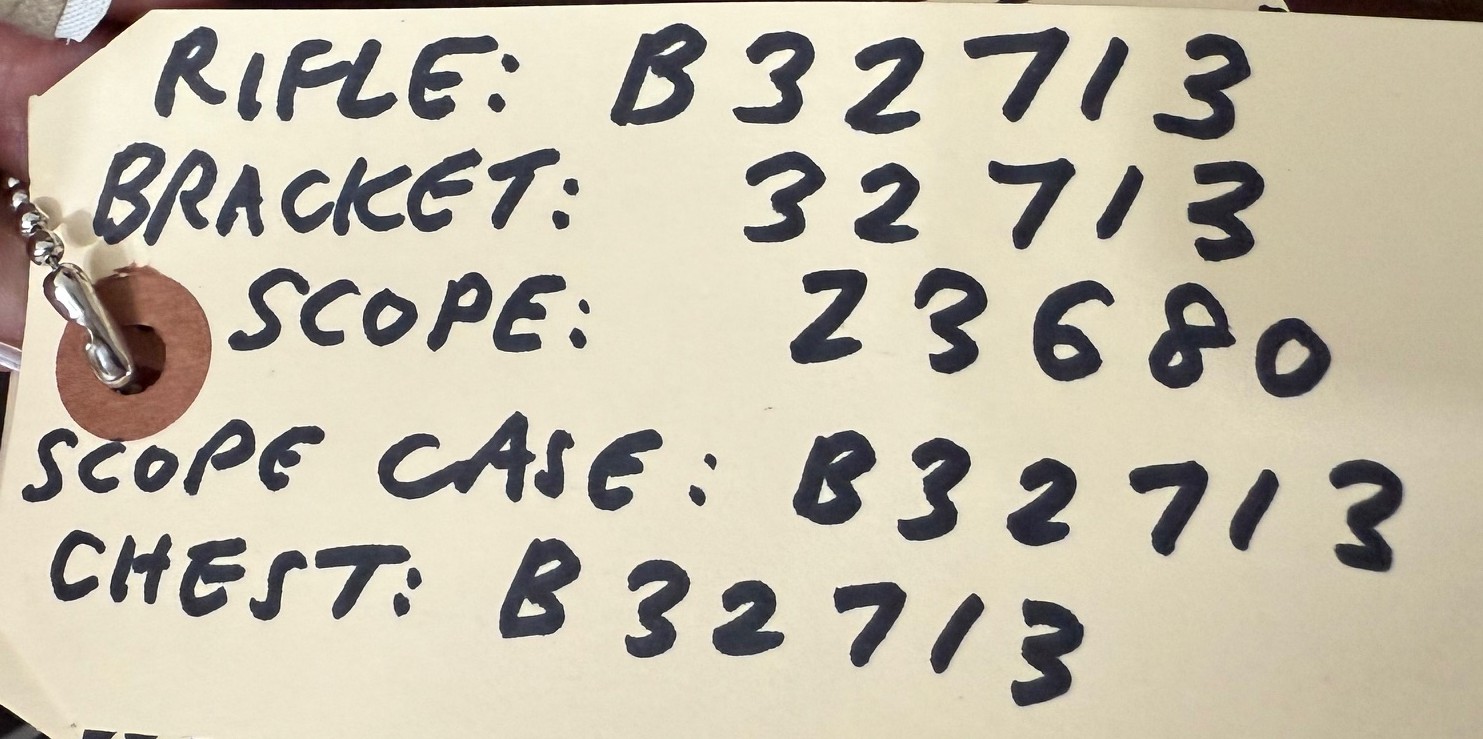 RIFLE: B32713
BRACKET: 32713
SCOPE: 23680
SCOPE CASE: B32713
CHEST: B32713